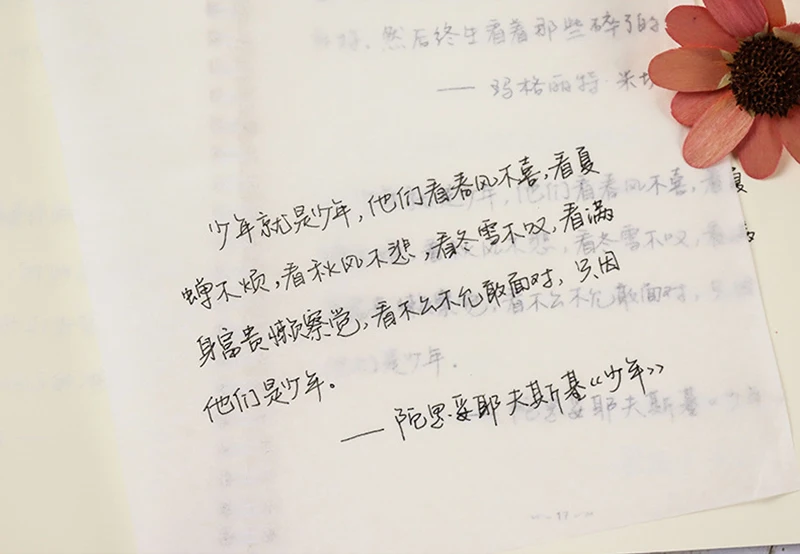 然后终生看着那些碎了的
—— 玛格丽特·米切
少年就是少年，他们看春风不喜，看夏
蝉不烦，看秋风不悲，看冬雪不叹，看满
身富贵懒察觉，看不公不允敢面对，只因
他们是少年。
—— 陀思妥耶夫斯基《少年》